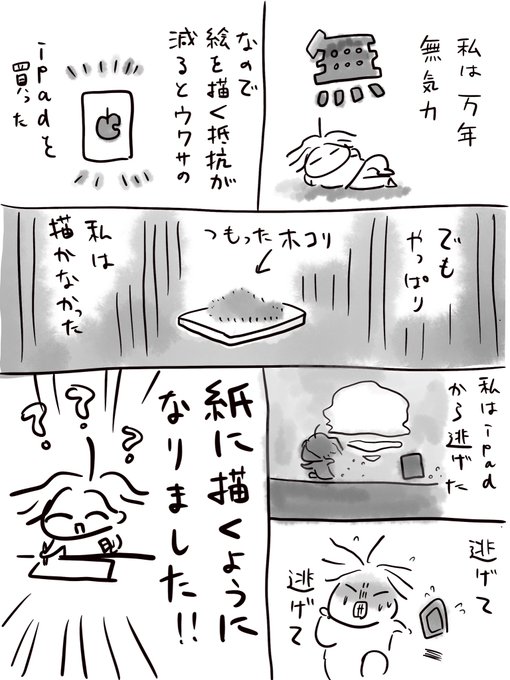 私は万年
無気力
なので
絵を描く抵抗が
減るとウワサの
ipadを
買った
でも
やっぱり
つもったホコリ
私は
描かなかった
私はipad
から逃げた
逃げて
逃げて
紙に描くように
なりました!!
? ? ?